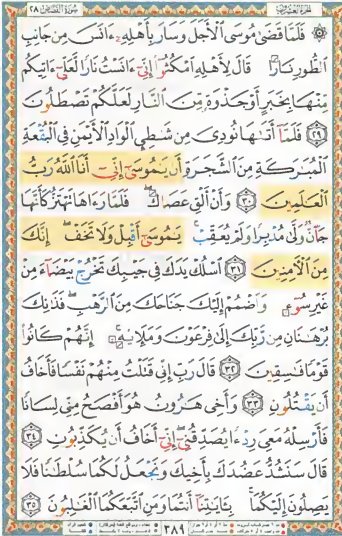 الجزء العشرون
سورة القصص ٢٨
۞ فَلَمَّا قَضَىٰ مُوسَى ٱلْأَجَلَ وَسَارَ بِأَهْلِهِۦٓ ءَانَسَ مِن جَانِبِ
ٱلطُّورِ نَارًۭا قَالَ لِأَهْلِهِ ٱمْكُثُوٓا۟ إِنِّىٓ ءَانَسْتُ نَارًۭا لَّعَلِّىٓ ءَاتِيكُم
مِّنْهَا بِخَبَرٍ أَوْ جَذْوَةٍۢ مِّنَ ٱلنَّارِ لَعَلَّكُمْ تَصْطَلُونَ
٢٩ فَلَمَّآ أَتَىٰهَا نُودِىَ مِن شَـٰطِئِ ٱلْوَادِ ٱلْأَيْمَنِ فِى ٱلْبُقْعَةِ
ٱلْمُبَـٰرَكَةِ مِنَ ٱلشَّجَرَةِ أَن يَـٰمُوسَىٰٓ إِنِّىٓ أَنَا ٱللَّهُ رَبُّ
ٱلْعَـٰلَمِينَ ٣٠ وَأَنْ أَلْقِ عَصَاكَ ۖ فَلَمَّا رَءَاهَا تَهْتَزُّ كَأَنَّهَا
جَآنٌّۭ وَلَّىٰ مُدْبِرًۭا وَلَمْ يُعَقِّبْ ۚ يَـٰمُوسَىٰٓ أَقْبِلْ وَلَا تَخَفْ ۖ إِنَّكَ
مِنَ ٱلْـَٔامِنِينَ ٣١ ٱسْلُكْ يَدَكَ فِى جَيْبِكَ تَخْرُجْ بَيْضَآءَ مِنْ
غَيْرِ سُوٓءٍۢ وَٱضْمُمْ إِلَيْكَ جَنَاحَكَ مِنَ ٱلرَّهْبِ ۖ فَذَٰنِكَ
بُرْهَـٰنَانِ مِن رَّبِّكَ إِلَىٰ فِرْعَوْنَ وَمَلَإِي۟هِۦٓ ۚ إِنَّهُمْ كَانُوا۟
قَوْمًۭا فَـٰسِقِينَ ٣٢ قَالَ رَبِّ إِنِّى قَتَلْتُ مِنْهُمْ نَفْسًۭا فَأَخَافُ
أَن يَقْتُلُونِ ٣٣ وَأَخِى هَـٰرُونُ هُوَ أَفْصَحُ مِنِّى لِسَانًۭا
فَأَرْسِلْهُ مَعِىَ رِدْءًۭا يُصَدِّقُنِىٓ ۖ إِنِّىٓ أَخَافُ أَن يُكَذِّبُونِ ٣٤
قَالَ سَنَشُدُّ عَضُدَكَ بِأَخِيكَ وَنَجْعَلُ لَكُمَا سُلْطَـٰنًۭا فَلَا
يَصِلُونَ إِلَيْكُمَا ۚ بِـَٔايَـٰتِنَآ أَنتُمَا وَمَنِ ٱتَّبَعَكُمَا ٱلْغَـٰلِبُونَ ٣٥
٣٨٩